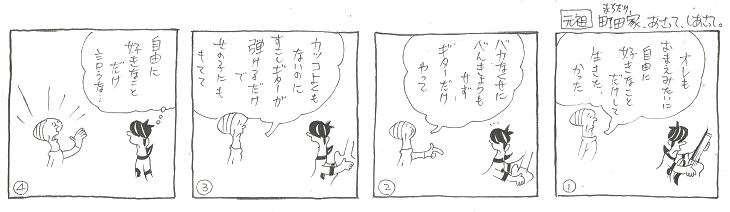 元祖 町田家、あさって、しあさって。
まちだけ
オレも
おまえみたいに
自由に
好きなこと
だけして
生きた
かった
①
バカなくせに
べんきょうも
せず
ギターだけ
やって
②
カッコよくも
ないのに
すこしギターが
弾けるだけ
で
女の子にも
もてて
③
自由に
好きなこと
だけ
言うな…
④